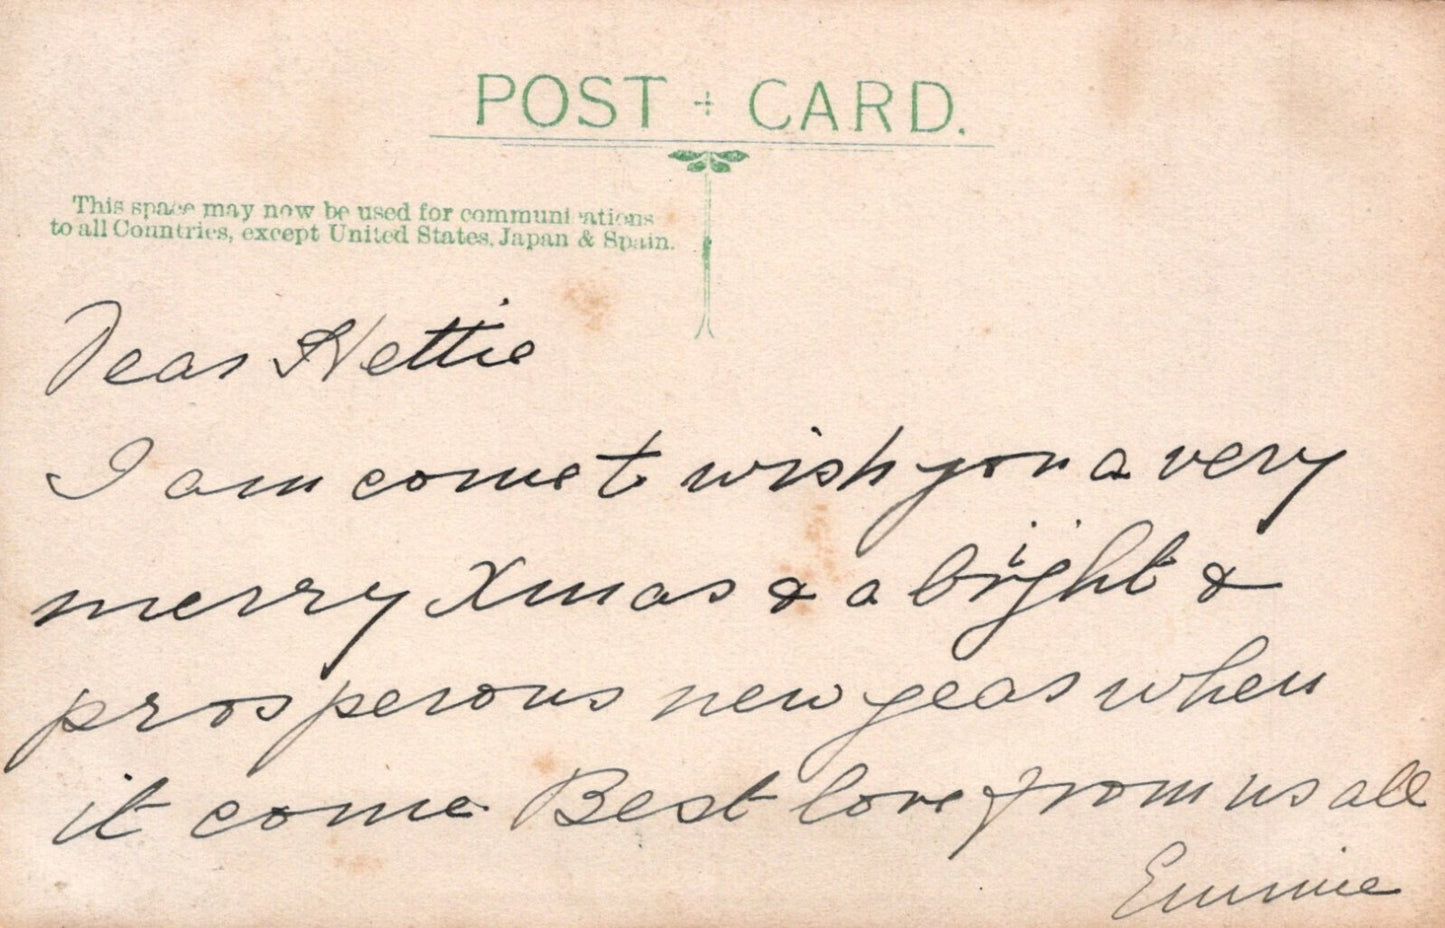 POST + CARD.
This space may now be used for communications
to all Countries, except United States, Japan & Spain.
Dear Hettie
I am come to wish you a very
merry Xmas & a bright &
prosperous new year when
it come Best love from us all
Emmie